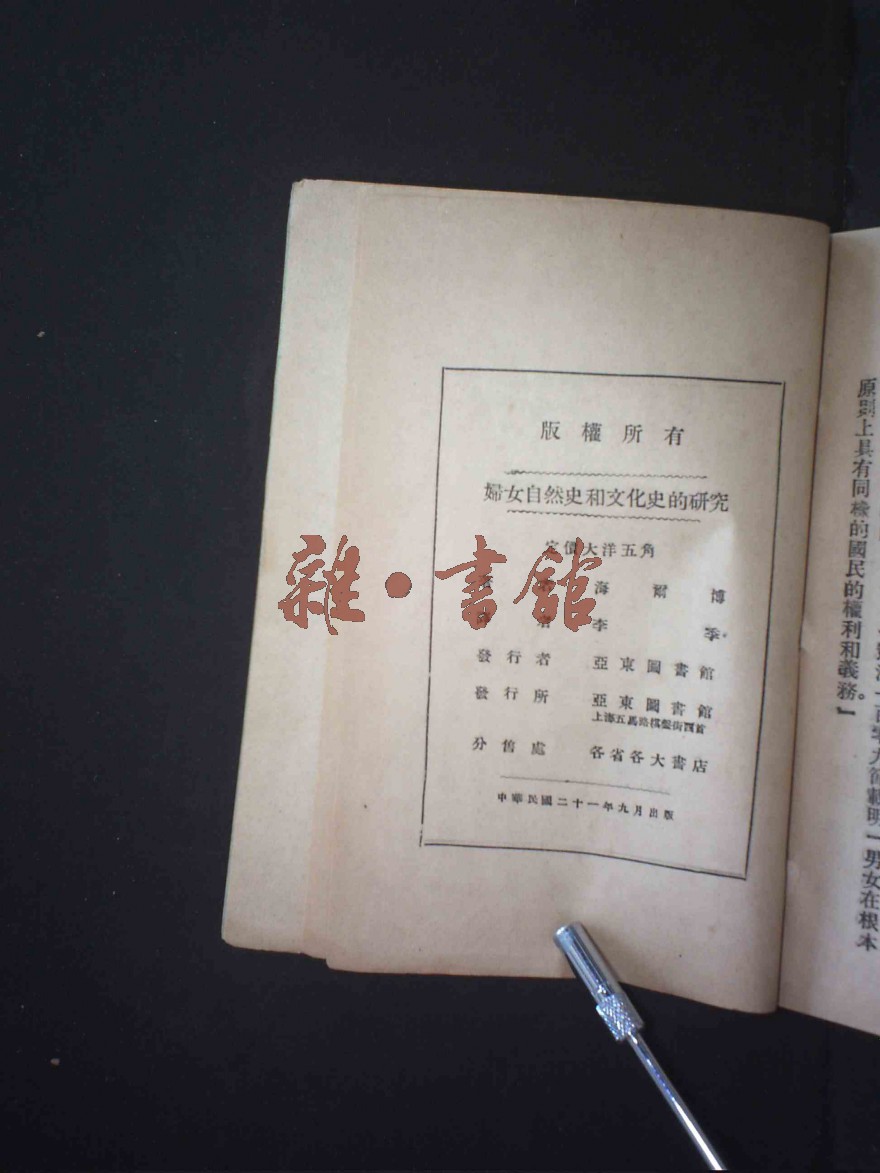 版權所有
婦女自然史和文化史的研究
定價大洋五角
海爾博
者 李季
發行者 亞東圖書館
發行所 亞東圖書館
上海五馬路棋盤街西首
分售處 各省各大書店
中華民國二十一年九月出版
雜·書館
原則上具有同樣的國民的權利和義務。』
百零九節載明『男女在根本